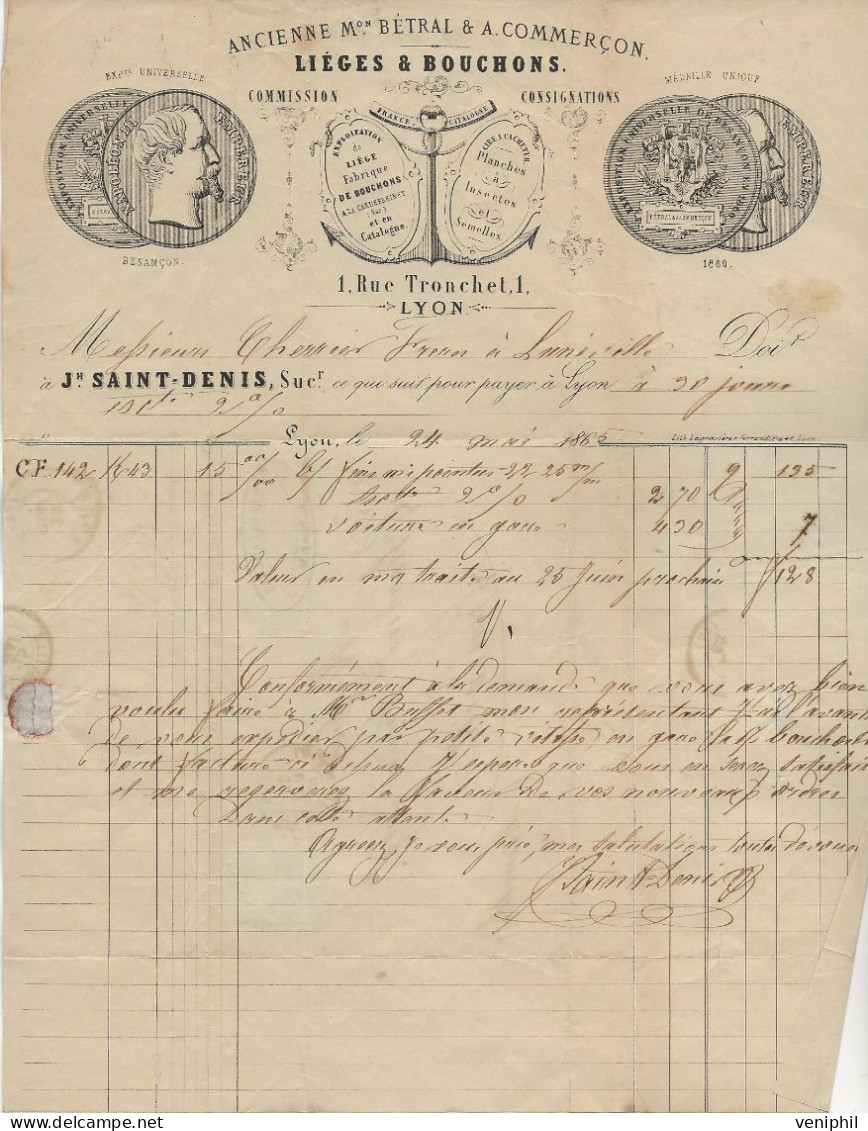 ANCIENNE Mon BÉTRAL & A. COMMERÇON.
LIÉGES & BOUCHONS.
EXPon UNIVERSELLE
COMMISSION
CONSIGNATIONS
MÉDAILLE UNIQUE
EXPOSITION UNIVERSELLE
NAPOLÉON III EMPEREUR
FRANCE CATALOGNE
EXPLOITATION
de
LIÉGE
Fabrique
DE BOUCHONS
(Var)
et en
Catalogne.
CIRE A CACHETER
Planches
à
Insectes
et
Semelles.
EXPOSITION UNIVERSELLE DE BESANÇON EN 1860
BÉTRAL & A. COMMERÇON
EMPEREUR
BESANÇON.
1860.
1, Rue Tronchet, 1,
LYON.
Messieurs Cherrier Freres à Lunéville Doivt
à JH SAINT-DENIS, Sucr ce qui suit pour payer à Lyon à 30 jours
escte 2 %
Lyon, le 24 mai 1865
Lith. Lagravière r. Ferrandière Lyon
CF 142 K 43 15 00/00 b/ fins mi pointus 22 25 m/m 9 135
escte 2 % 2 70
voiture en gare 4 30 7
Valeur en ma traite au 25 Juin prochain f 128
Conformément à la demande que vous avez bien
voulu faire à Mr Buffet mon représentant J'ai l'avant
de vous expédier par petite vitesse en gare la Bll bouchons
dont facture ci dessus J'espère que vous en serez satisfait
et me reserverez la faveur de vos nouveaux ordres
Dans cette attente
Agréez, je vous prie, mes salutations toutes dévouées
JSaint-Denis
veniphil